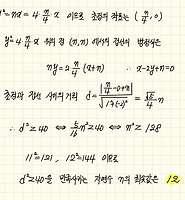 y²=nx=4·n/4 x 이므로 초점의 좌표는 (n/4, 0)
y²=4·n/4 x 위의 점 (n, n) 에서의 접선의 방정식은
ny=2·n/4 (x+n) ∴ x-2y+n=0
초점과 접선 사이의 거리 d=|n/4-0+n|/√(1²+(-2)²)=√5/4 n
∴ d²≥40 ⟺ 5/16 n²≥40 ⟺ n²≥128
11²=121, 12²=144 이므로
d²≥40을 만족시키는 자연수 n의 최솟값은 12